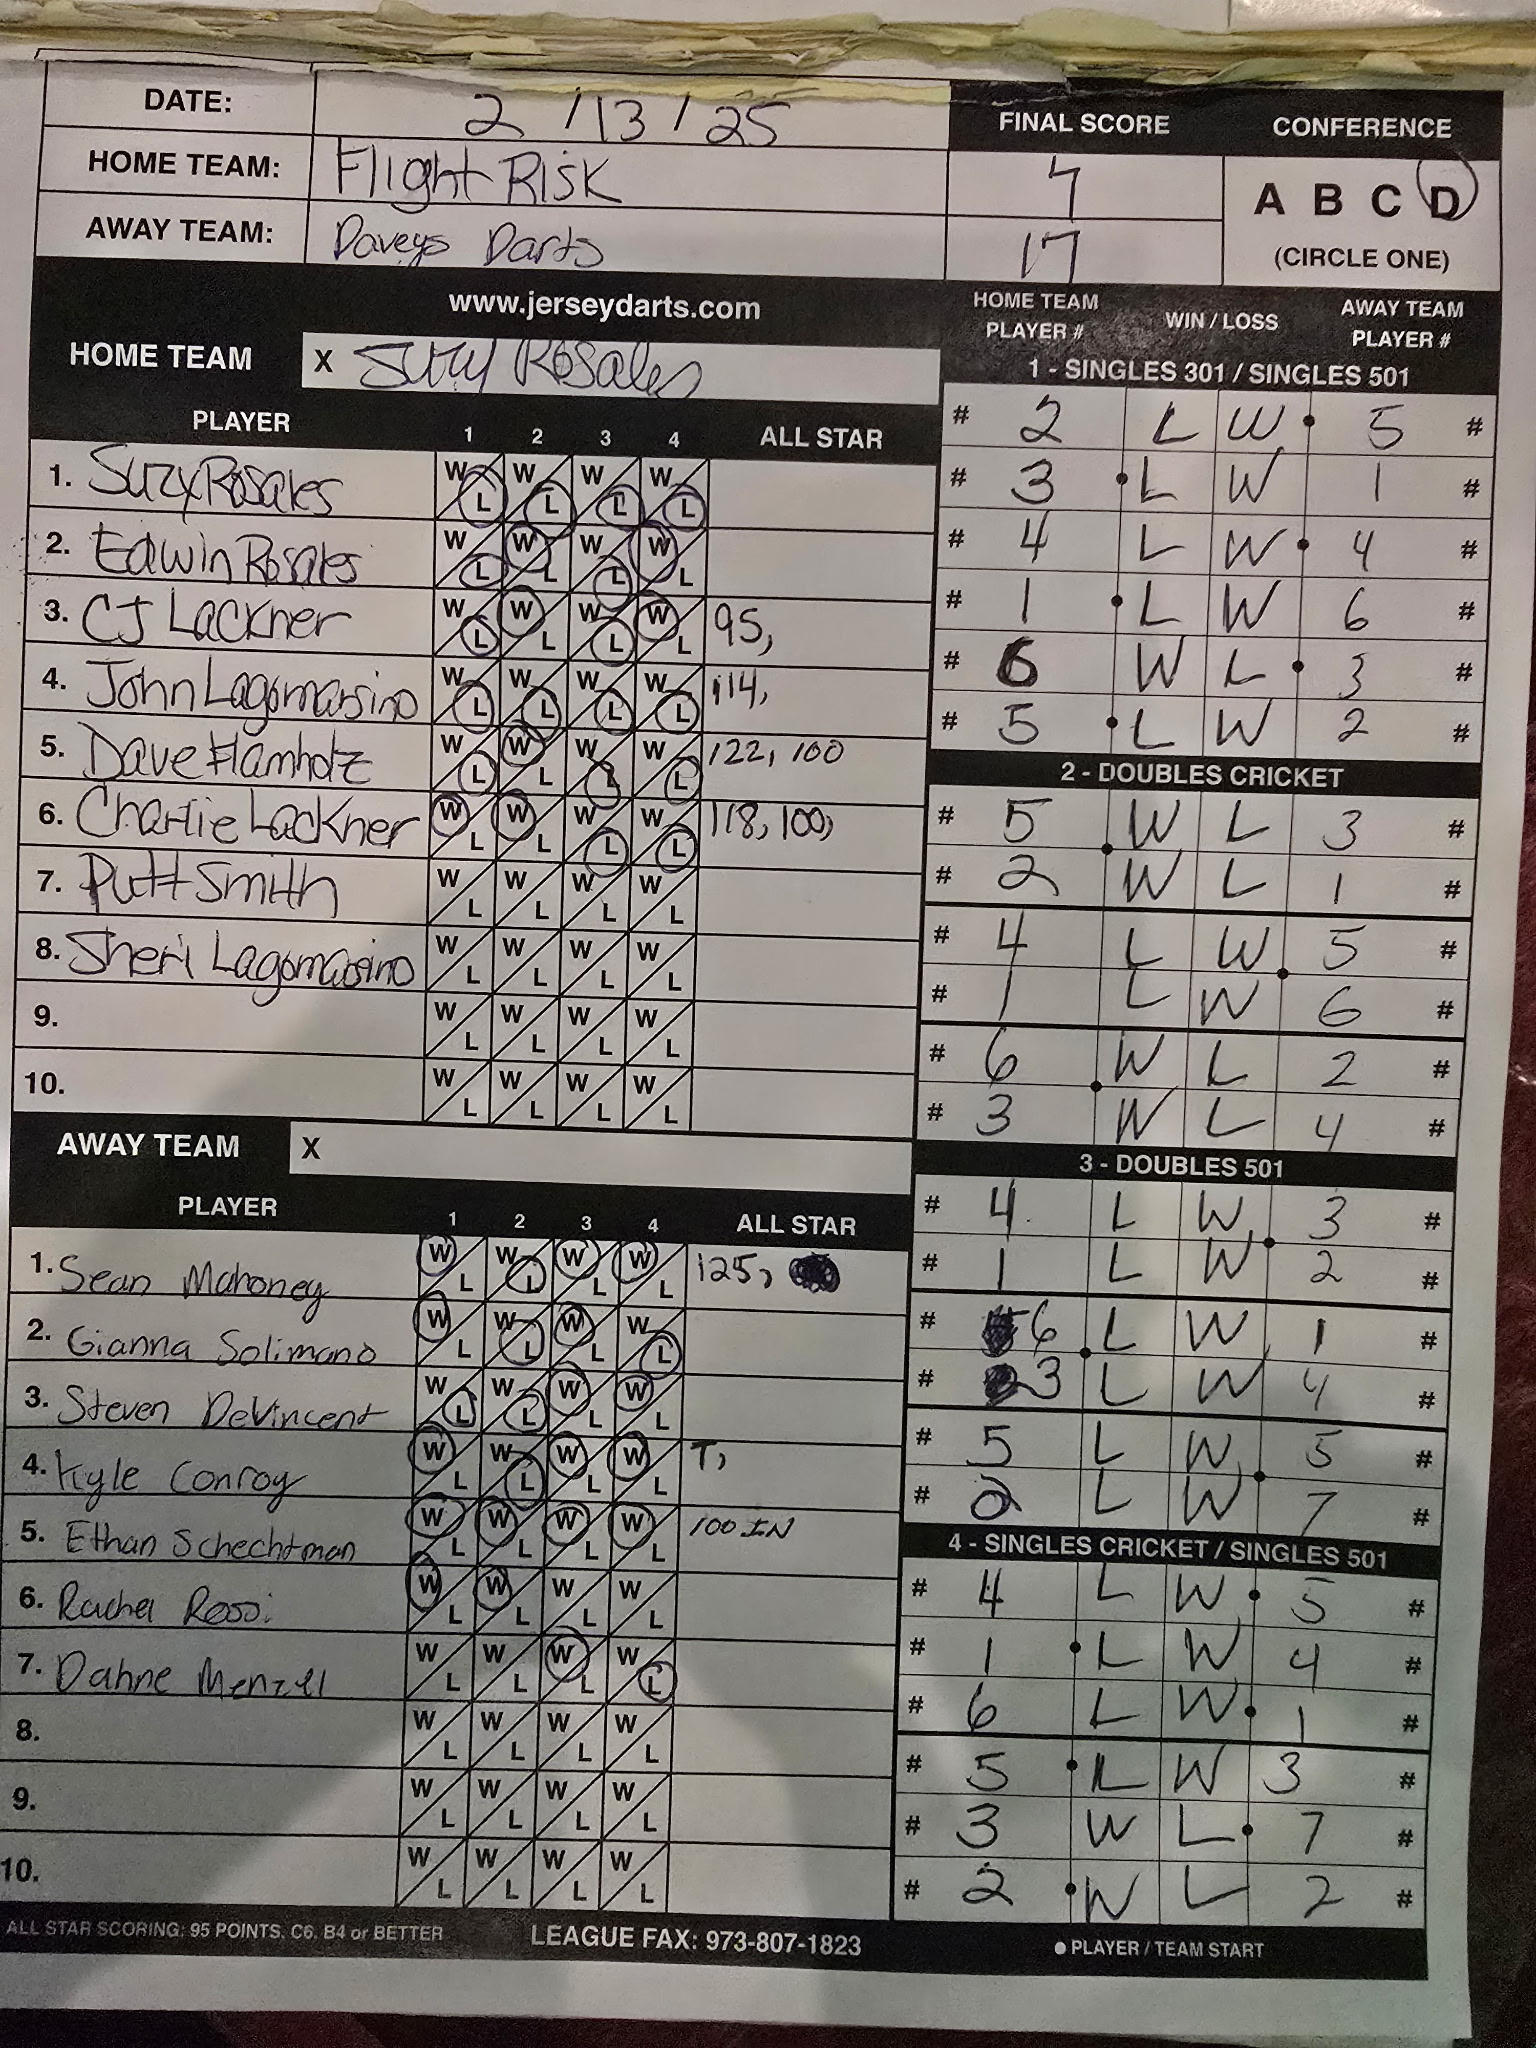 DATE: 2 / 13 / 25
FINAL SCORE CONFERENCE
HOME TEAM: Flight Risk 7 A B C D
AWAY TEAM: Daveys Darts 17 (CIRCLE ONE)
www.jerseydarts.com
HOME TEAM PLAYER # WIN / LOSS AWAY TEAM PLAYER #
HOME TEAM X Suzy Rosales
PLAYER 1 2 3 4 ALL STAR
1. Suzy Rosales W L W L W L W L
2. Edwin Rosales W L W L W L W L
3. CJ Lackner W L W L W L W L 95,
4. John Lagomarsino W L W L W L W L 114,
5. Dave Flamholtz W L W L W L W L 122, 100
6. Charlie Lackner W L W L W L W L 118, 100,
7. Putt Smith W L W L W L W L
8. Sheri Lagomarsino W L W L W L W L
9. W L W L W L W L
10. W L W L W L W L
AWAY TEAM X
PLAYER 1 2 3 4 ALL STAR
1. Sean Mahoney W L W L W L W L 125,
2. Gianna Solimano W L W L W L W L
3. Steven DeVincent W L W L W L W L
4. Kyle Conroy W L W L W L W L T,
5. Ethan Schechtman W L W L W L W L 100 IN
6. Rachel Rossi W L W L W L W L
7. Dahne Menzell W L W L W L W L
8. W L W L W L W L
9. W L W L W L W L
10. W L W L W L W L
ALL STAR SCORING: 95 POINTS, C6, B4 or BETTER LEAGUE FAX: 973-807-1823
1 - SINGLES 301 / SINGLES 501
# 2 L W 5 #
# 3 L W 1 #
# 4 L W 4 #
# 1 L W 6 #
# 6 W L 3 #
# 5 L W 2 #
2 - DOUBLES CRICKET
# 5 W L 3 #
# 2 W L 1 #
# 4 L W 5 #
# 1 L W 6 #
# 6 W L 2 #
# 3 W L 4 #
3 - DOUBLES 501
# 4 L W 3 #
# 1 L W 2 #
# 6 L W 1 #
# 3 L W 4 #
# 5 L W 5 #
# 2 L W 7 #
4 - SINGLES CRICKET / SINGLES 501
# 4 L W 5 #
# 1 L W 4 #
# 6 L W 1 #
# 5 L W 3 #
# 3 W L 7 #
# 2 W L 2 #
● PLAYER / TEAM START